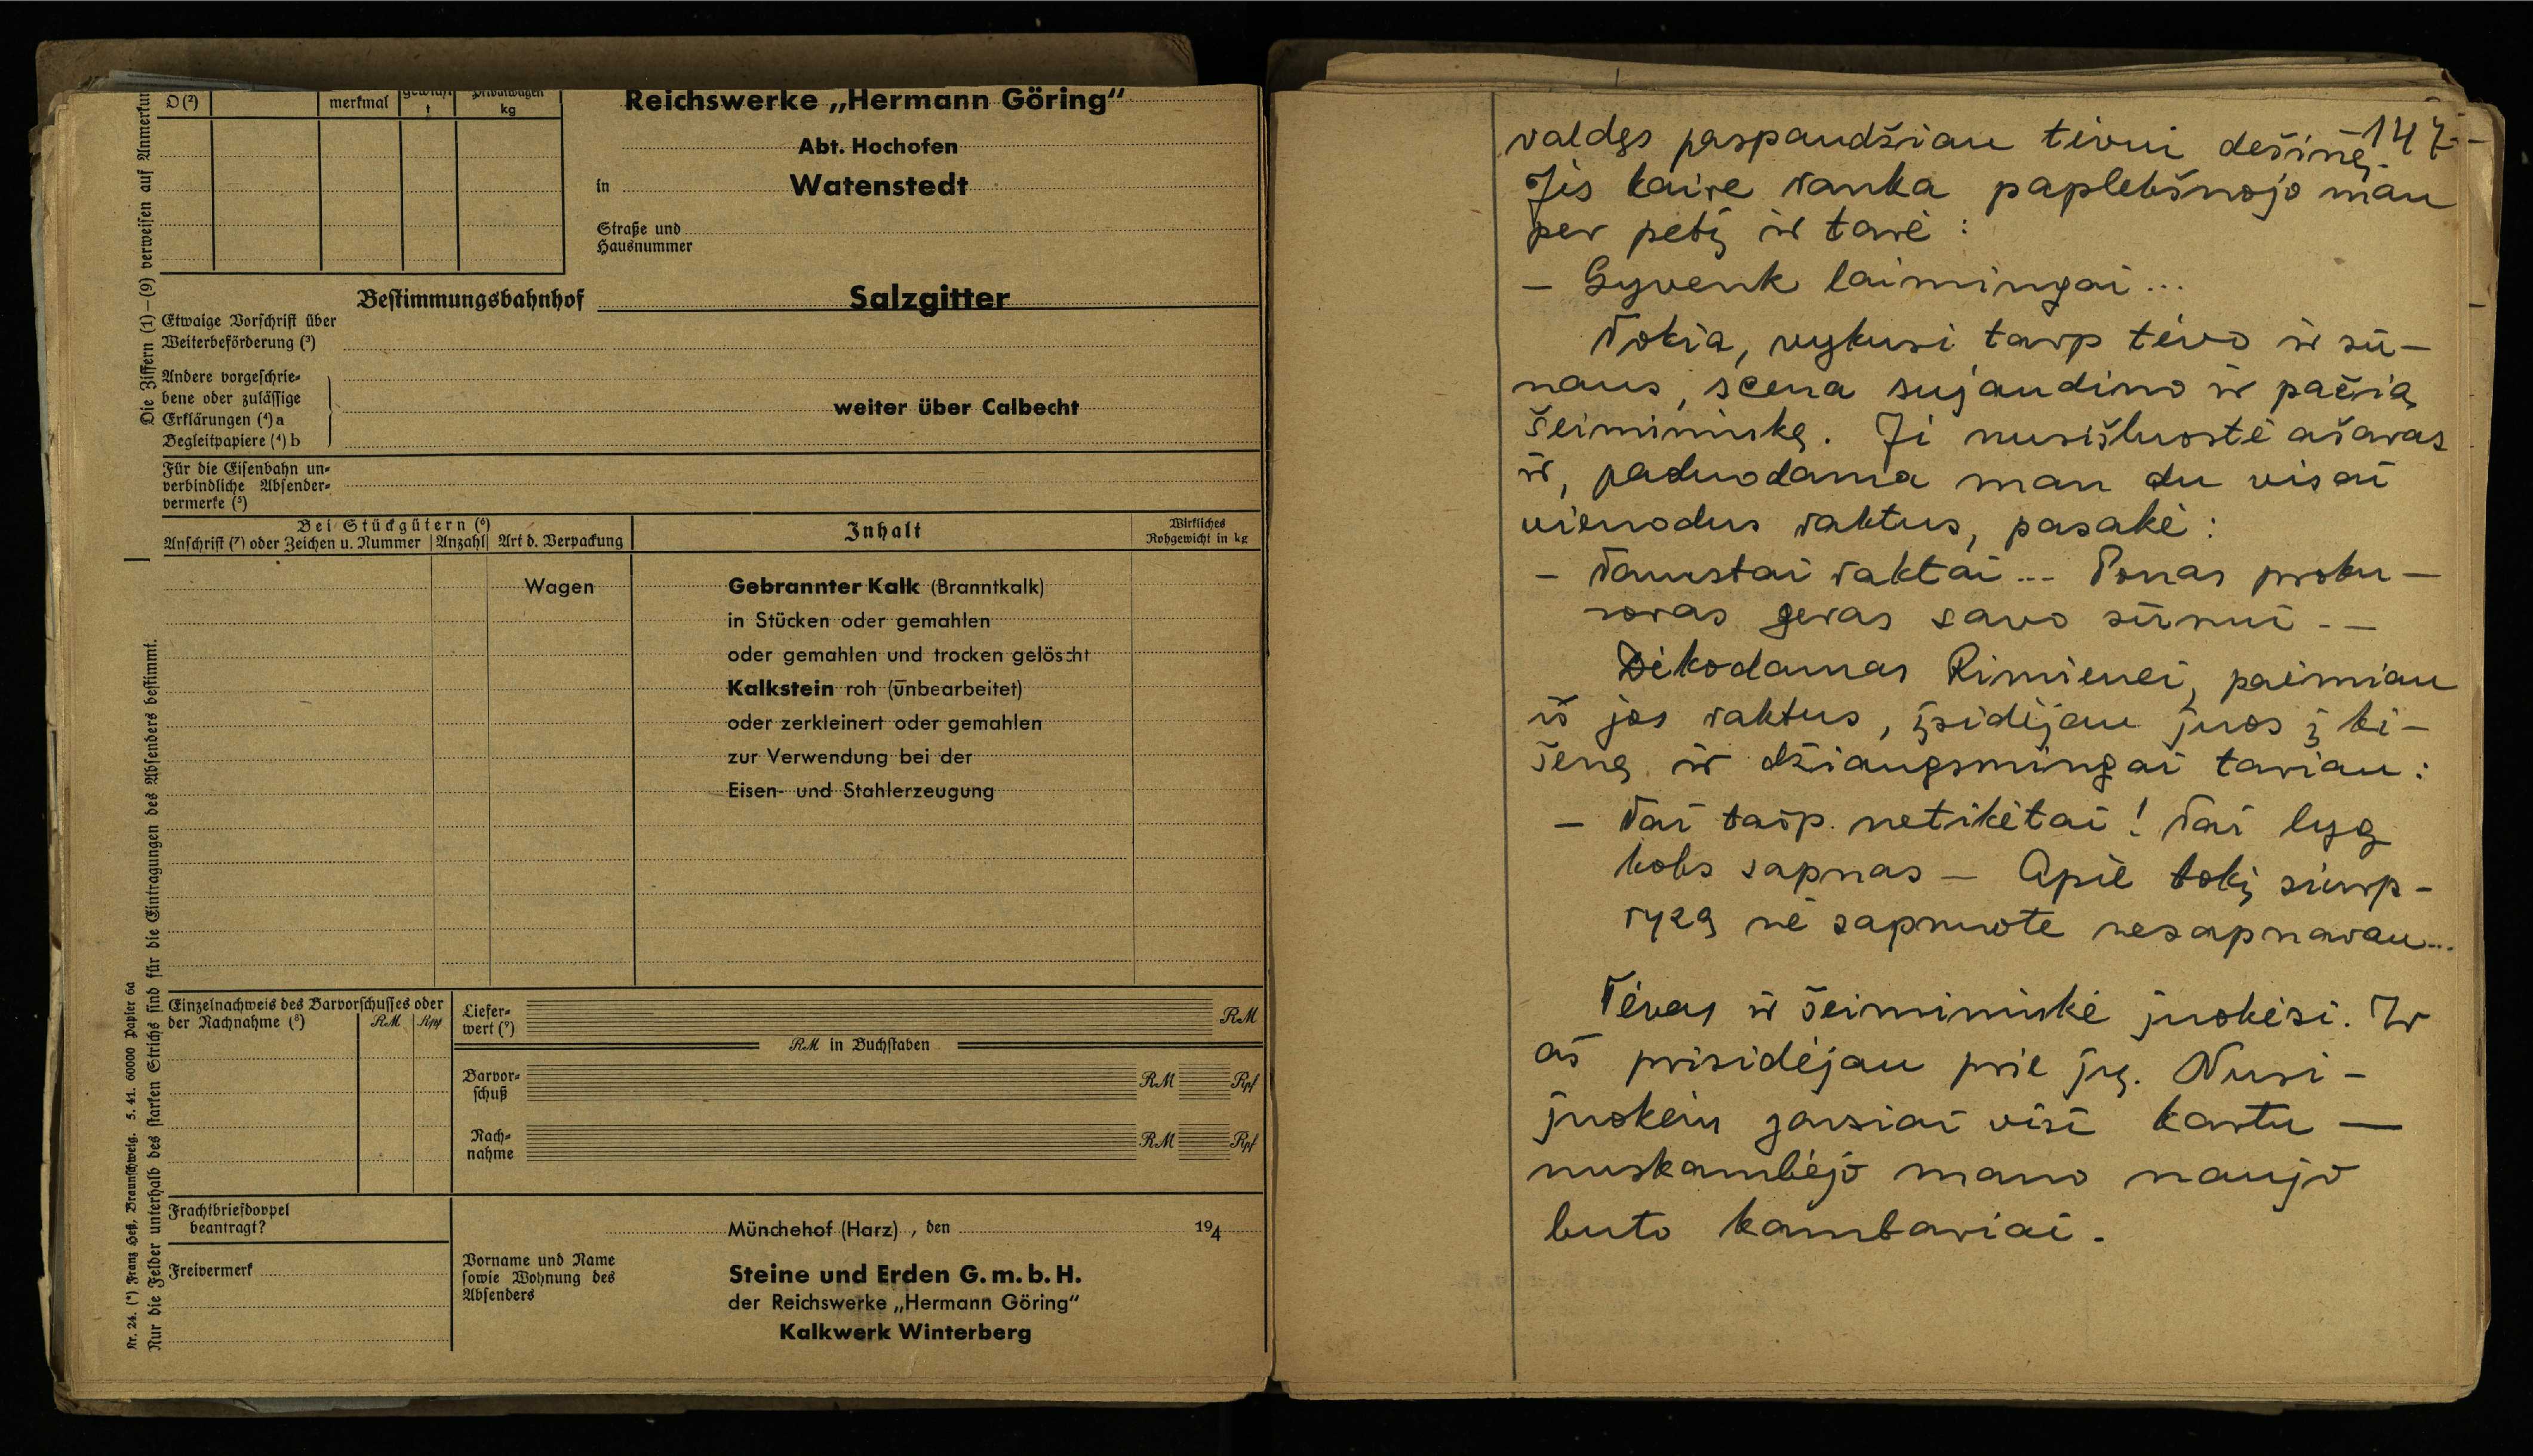 O (²)
merkmal
t
kg
Reichswerke „Hermann Göring“
Abt. Hochofen
in Watenstedt
Straße und
Hausnummer
Bestimmungsbahnhof Salzgitter
Etwaige Vorschrift über
Weiterbeförderung (³)
Andere vorgeschrie-
bene oder zulässige
Erklärungen (⁴) a
Begleitpapiere (⁴) b
weiter über Calbecht
Für die Eisenbahn un-
verbindliche Absender-
vermerke (⁵)
Bei Stückgütern (⁶)
Anschrift (⁷) oder Zeichen u. Nummer Anzahl Art d. Verpackung
Inhalt
Wirkliches
Rohgewicht in kg
Wagen
Gebrannter Kalk (Branntkalk)
in Stücken oder gemahlen
oder gemahlen und trocken gelöscht
Kalkstein roh (unbearbeitet)
oder zerkleinert oder gemahlen
zur Verwendung bei der
Eisen- und Stahlerzeugung
Einzelnachweis des Barvorschusses oder
der Nachnahme (⁸) RM Rpf
Liefer-
wert (⁹) RM
RM in Buchstaben
Barvor-
schuß RM Rpf
Nach-
nahme RM Rpf
Frachtbriefdoppel
beantragt?
Freivermerk
Münchehof (Harz), den 194
Vorname und Name
sowie Wohnung des
Absenders
Steine und Erden G.m.b.H.
der Reichswerke „Hermann Göring“
Kalkwerk Winterberg
Die Ziffern (1)–(9) verweisen auf
Nur die Felder unterhalb des starken Strichs sind für die Eintragungen des Absenders bestimmt.
Nr. 24. (*) Franz Heß, Braunschweig. 5. 41. 60000 Papier 6a
-147-
valdęs paspaudžiau tėvui dešinę.
Jis kaire ranka paplekšnojo man
per petį ir tarė:
– Gyvenk laimingai...
Tokia, vykusi tarp tėvo ir sū-
naus, scena sujaudino ir pačią
šeimininkę. Ji nusišluostė ašaras
ir, paduodama man du visai
vienodus raktus, pasakė:
– Tamstai raktai... Ponas proku-
roras geras savo sūnui...
Dėkodamas Rimienei, paėmiau
iš jos raktus, įsidėjau juos į ki-
šenę ir džiaugsmingai tariau:
– Tai taip netikėtai! Tai lyg
koks sapnas – Apie tokį siurp-
ryzą nė sapnuote nesapnavau...
Tėvas ir šeimininkė juokėsi. Ir
aš prisidėjau prie jų. Nusi-
juokėm garsiai visi kartu —
nuskambėjo mano naujo
buto kambariai.